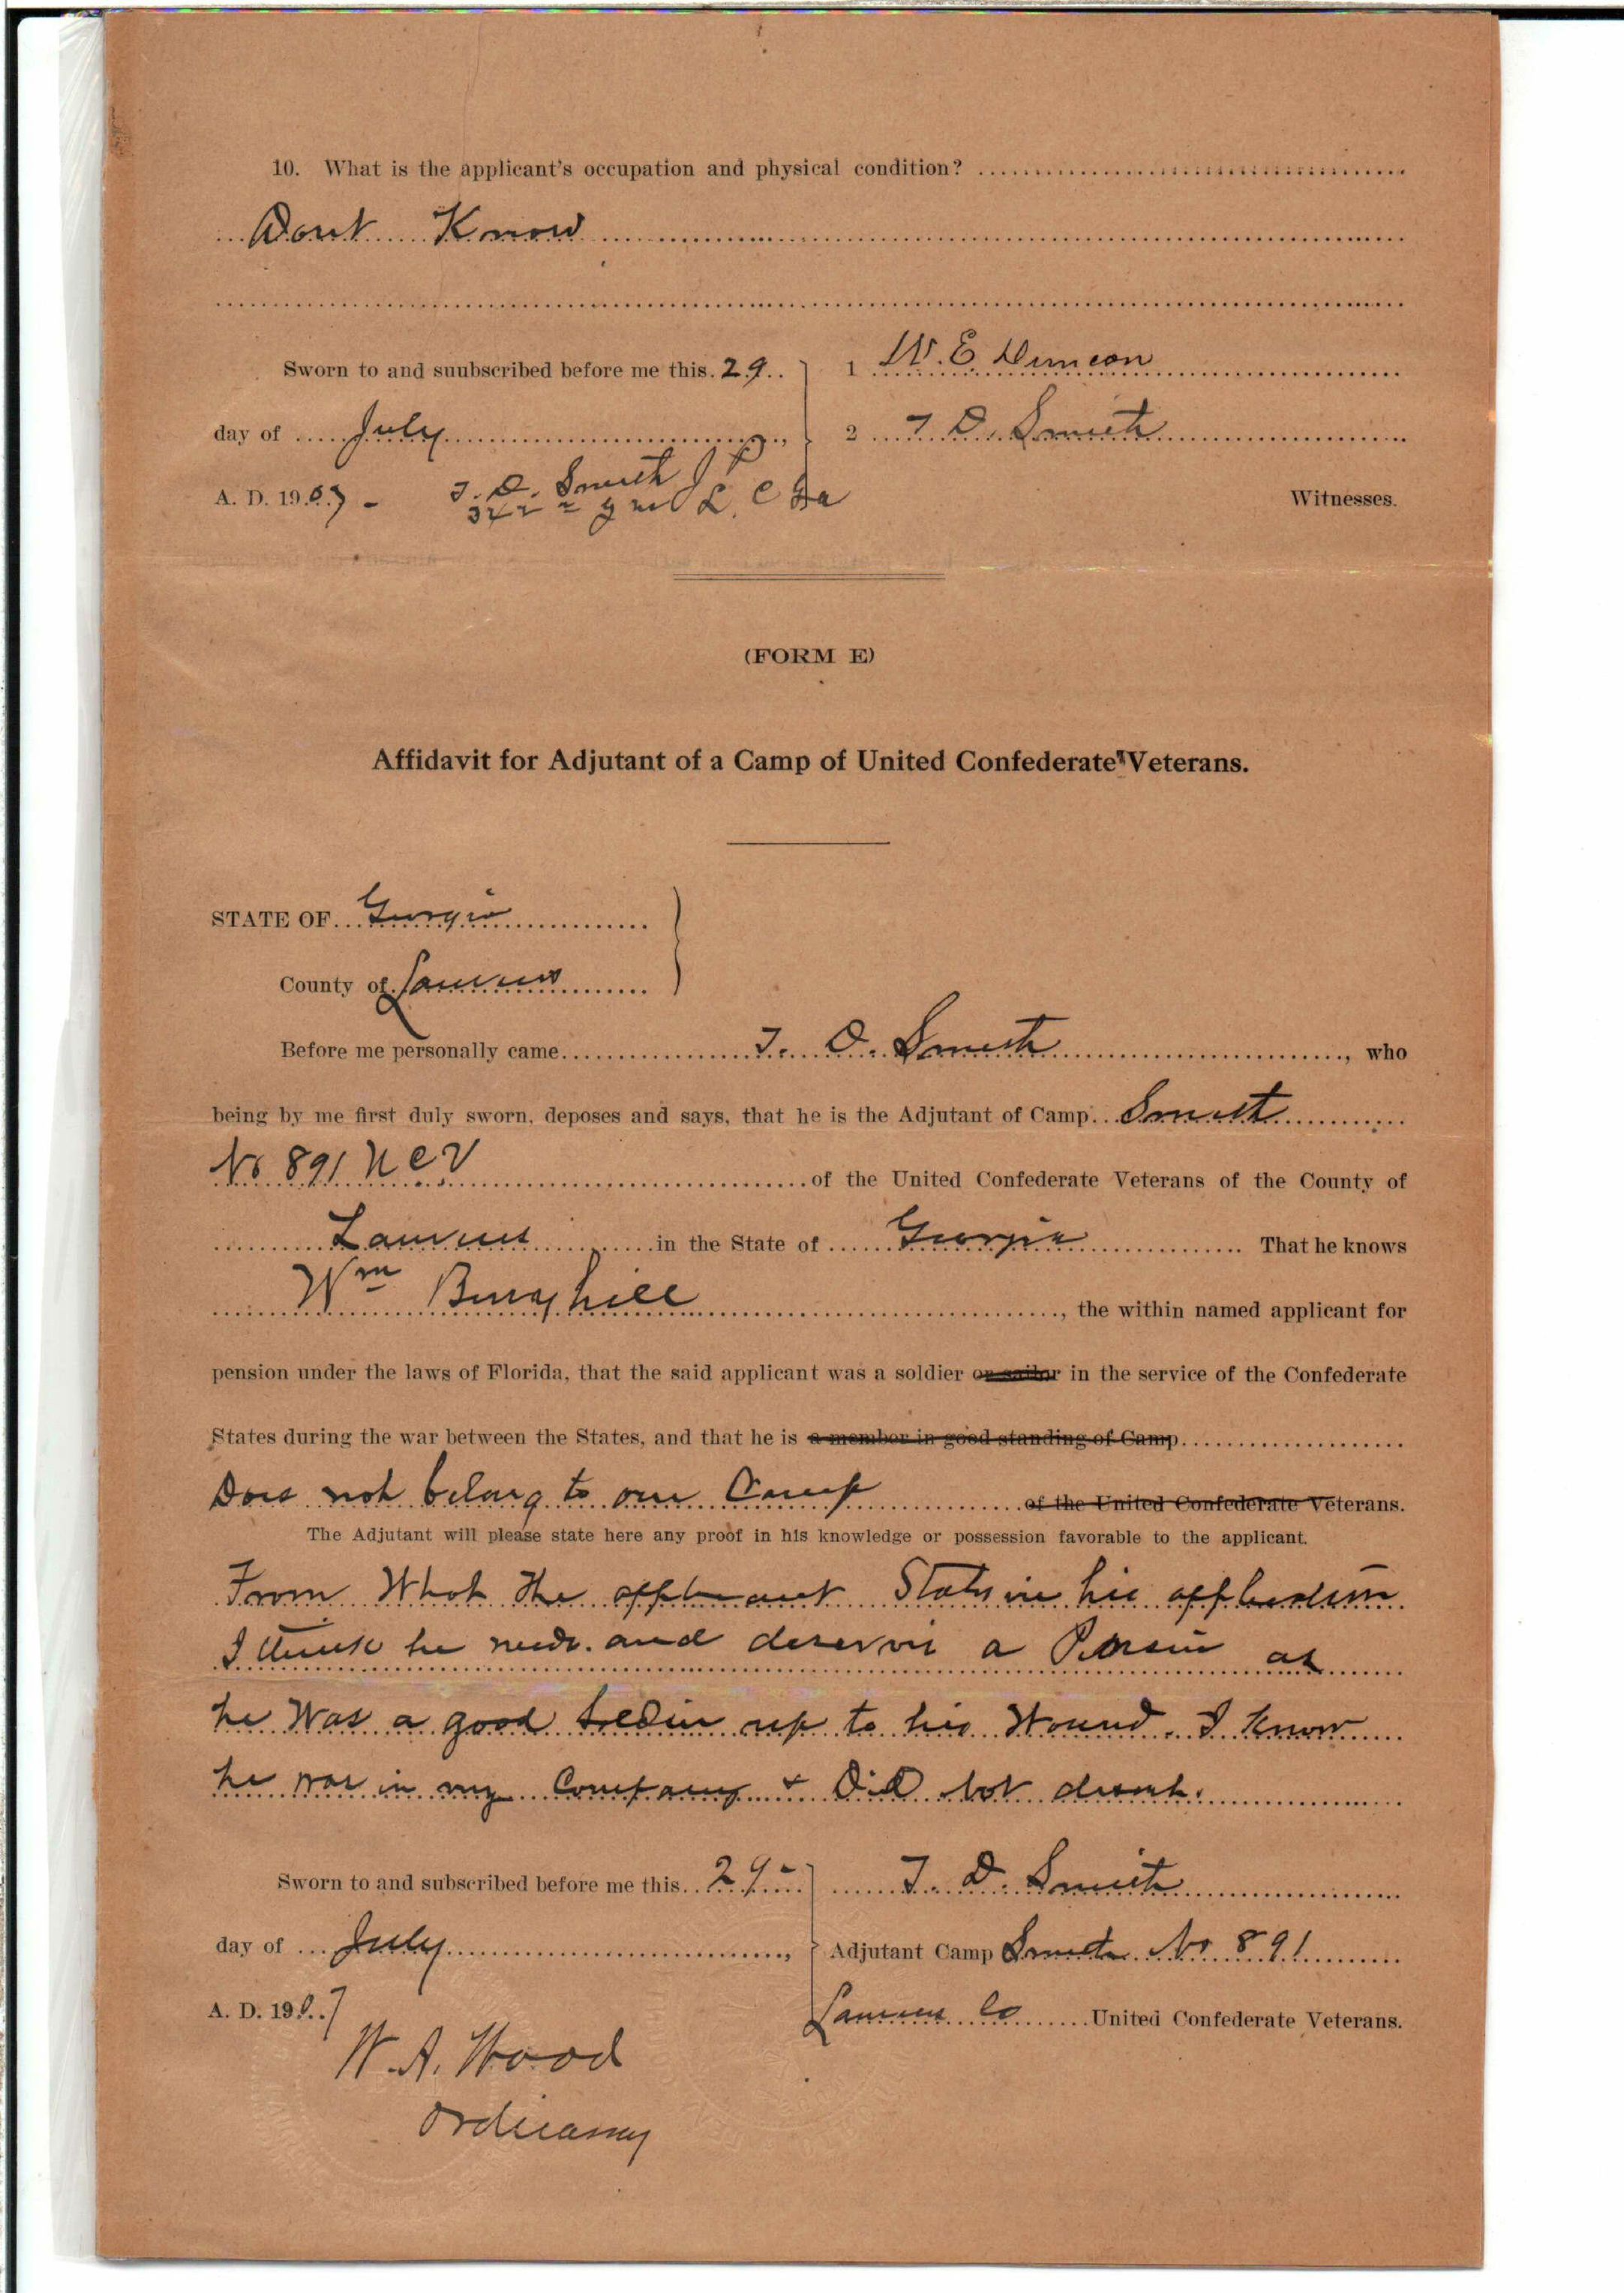 10. What is the applicant's occupation and physical condition?
Dont Know
Sworn to and suubscribed before me this 29
1 W. E. Duncan
day of July,
2 T. D. Smith
A. D. 1907 -
T. D. Smith J P
342 G M L. C Ga
Witnesses.
(FORM E)
Affidavit for Adjutant of a Camp of United Confederate Veterans.
STATE OF Georgia
County of Laurens
Before me personally came T. D. Smith, who
being by me first duly sworn, deposes and says, that he is the Adjutant of Camp Smith
No 891 U C V of the United Confederate Veterans of the County of
Laurens in the State of Georgia That he knows
Wm, the within named applicant for
pension under the laws of Florida, that the said applicant was a soldier or sailor in the service of the Confederate
States during the war between the States, and that he is a member in good standing of Camp
Does not belong to our Camp of the United Confederate Veterans.
The Adjutant will please state here any proof in his knowledge or possession favorable to the applicant.
From What the applicant States in his application
I think he needs and deserves a Pension as
he Was a good Soldier up to his Wound. I Know
he was in my Company & Did Not desert.
Sworn to and subscribed before me this 29 -
T. D. Smith
day of July,
Adjutant Camp Smith No 891
A. D. 1907
Laurens Co United Confederate Veterans.
W. A. Wood
Ordinary